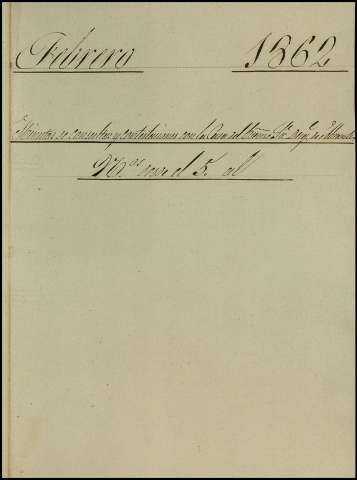 Febrero 1862
Minutas de consultas y contestaciones con la Casa del Exmo. Sr.
N.os desde el 5. al